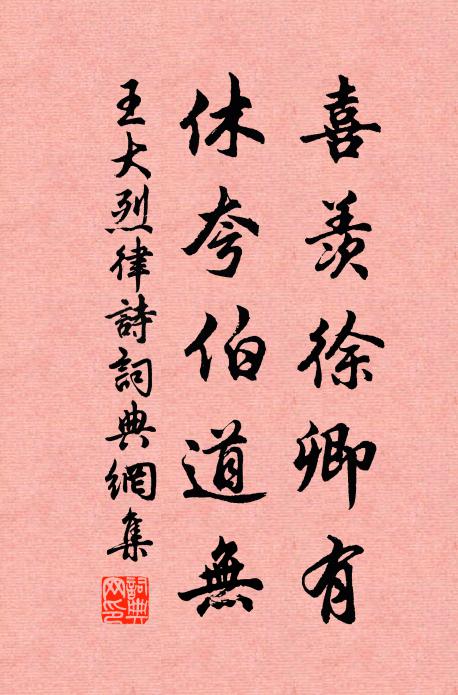 喜羨徐卿有
休夸伯道無
王大烈律詩詞典網集
詞典网印